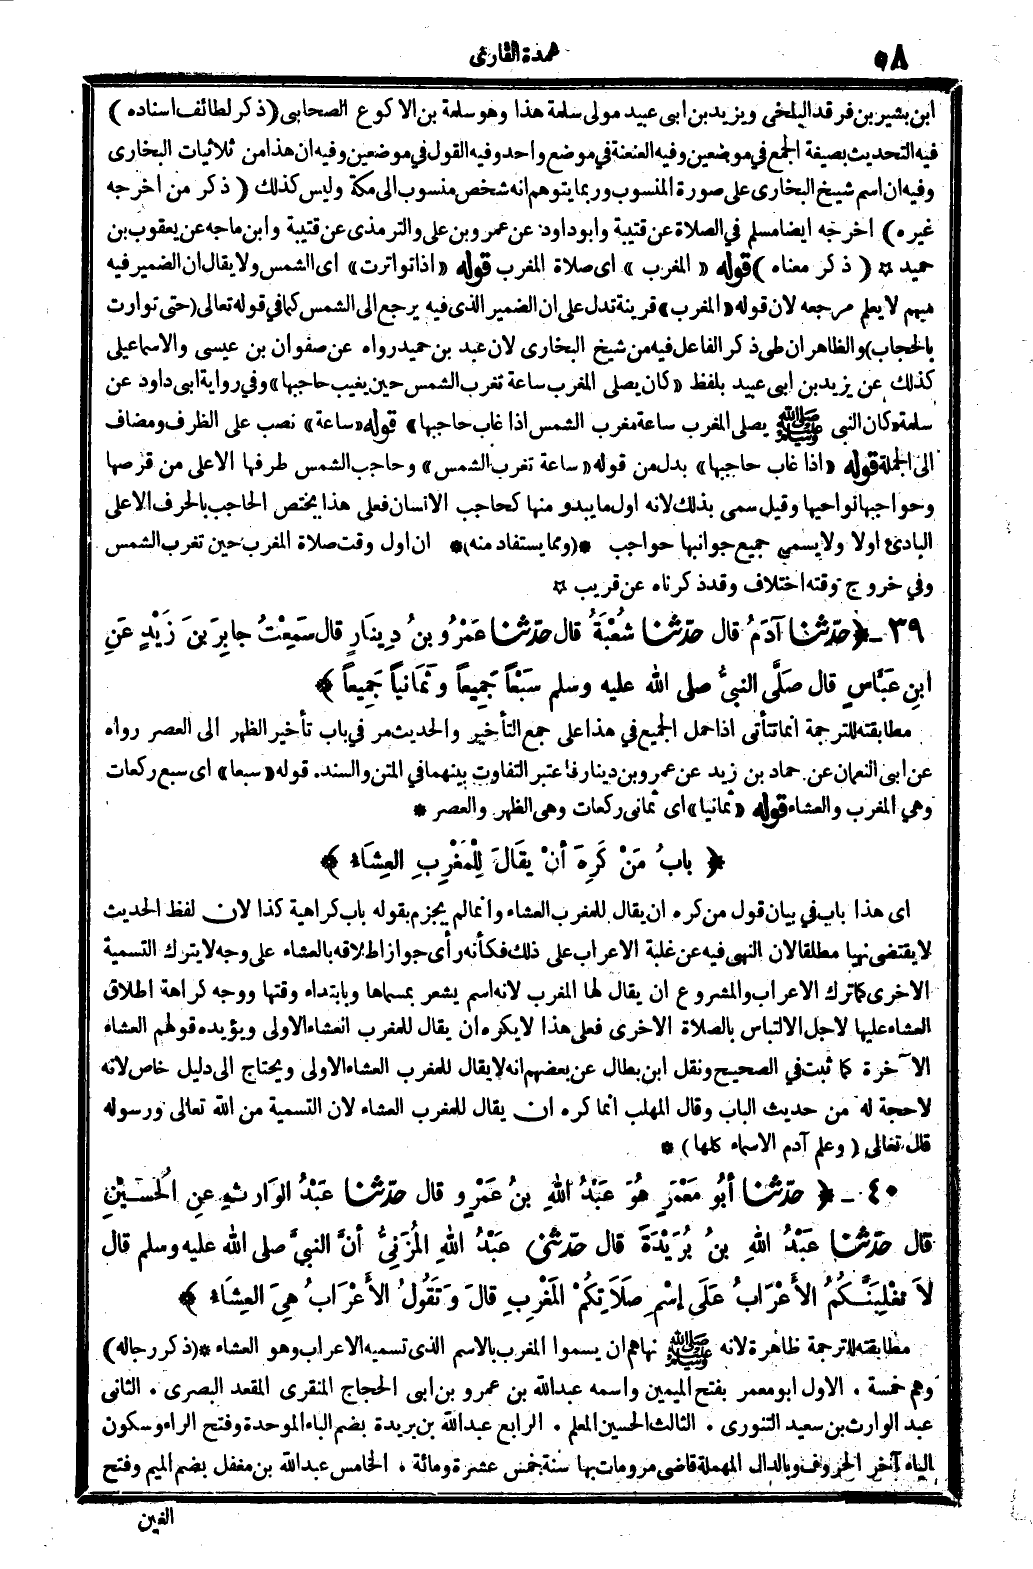 ٥٨
عمدة القارئ
ابن بشير بن فرقد البلخى ويزيد بن ابى عبيد مولى سلمة هذا وهو سلمة بن الاكوع الصحابى (ذكر لطائف اسناده)
فيه التحديث بصيغة الجمع في موضعين وفيه العنعنة في موضع واحد وفيه القول في موضعين وفيه ان هذا من ثلاثيات البخارى
وفيه ان اسم شيخ البخارى على صورة المنسوب وربما يتوهم انه شخص منسوب الى مكة وليس كذلك (ذكر من اخرجه
غيره) اخرجه ايضا مسلم في الصلاة عن قتيبة وابو داود عن عمرو بن على والترمذى عن قتيبة وابن ماجه عن يعقوب بن
حميد ☆ (ذكر معناه) قوله «المغرب» اى صلاة المغرب قوله «اذا تواترت» اى الشمس ولا يقال ان الضمير فيه
مبهم لا يعلم مرجعه لان قوله «المغرب» قرينة تدل على ان الضمير الذى فيه يرجع الى الشمس كما في قوله تعالى (حتى توارت
بالحجاب) والظاهر ان طى ذكر الفاعل فيه من شيخ البخارى لان عبد بن حميد رواه عن صفوان بن عيسى والاسماعيلى
كذلك عن يزيد بن ابى عبيد بلفظ «كان يصلى المغرب ساعة تغرب الشمس حين يغيب حاجبها» وفي رواية ابى داود عن
سلمة «كان النبى ﷺ يصلى المغرب ساعة مغرب الشمس اذا غاب حاجبها» قوله «ساعة» نصب على الظرف ومضاف
الى الجملة قوله «اذا غاب حاجبها» بدل من قوله «ساعة تغرب الشمس» وحاجب الشمس طرفها الاعلى من قرصها
وحواجبها نواحيها وقيل سمى بذلك لانه اول ما يبدو منها كحاجب الانسان فعلى هذا يختص الحاجب بالحرف الاعلى
البادئ اولا ولا يسمى جميع جوانبها حواجب *(ومما يستفاد منه)* ان اول وقت صلاة المغرب حين تغرب الشمس
وفي خروج وقته اختلاف وقد ذكرناه عن قريب ☆
٣٩ - ﴿ حدّثنا آدَمُ قال حدّثنا شُعْبَةُ قال حدّثنا عَمْرُو بنُ دِينَارٍ قال سَمِعْتُ جابِرَ بنَ زَيْدٍ عَنِ
ابنِ عَبَّاسٍ قال صَلَّى النبيُّ صلى الله عليه وسلم سَبْعاً جَمِيعاً وثَمَانِياً جَمِيعاً ﴾
مطابقته للترجمة انما تتأتى اذا حمل الجميع في هذا على جمع التأخير والحديث مر في باب تأخير الظهر الى العصر رواه
عن ابى النعمان عن حماد بن زيد عن عمرو بن دينار فاعتبر التفاوت بينهما في المتن والسند. قوله «سبعا» اى سبع ركعات
وهي المغرب والعشاء قوله «ثمانيا» اى ثمانى ركعات وهى الظهر والعصر *
﴿ بابُ مَنْ كَرِهَ أنْ يقَالَ لِلْمَغْرِبِ العِشَاءُ ﴾
اى هذا باب في بيان قول من كره ان يقال للمغرب العشاء وانما لم يجزم بقوله باب كراهية كذا لان لفظ الحديث
لا يقتضى نهيا مطلقا لان النهى فيه عن غلبة الاعراب على ذلك فكأنه رأى جواز اطلاقه بالعشاء على وجه لا يترك التسمية
الاخرى كما ترك الاعراب والمشروع ان يقال لها المغرب لانه اسم يشعر بمسماها وبابتداء وقتها ووجه كراهة اطلاق
العشاء عليها لاجل الالتباس بالصلاة الاخرى فعلى هذا لا يكره ان يقال للمغرب العشاء الاولى ويؤيده قولهم العشاء
الآخرة كما ثبت في الصحيح ونقل ابن بطال عن بعضهم انه لا يقال للمغرب العشاء الاولى ويحتاج الى دليل خاص لانه
لا حجة له من حديث الباب وقال المهلب انما كره ان يقال للمغرب العشاء لان التسمية من الله تعالى ورسوله
قال تعالى (وعلم آدم الاسماء كلها) *
٤٠ - ﴿ حدّثنا أبُو مَعْمَرٍ هُوَ عَبْدُ اللهِ بنُ عَمْرٍو قال حدّثنا عَبْدُ الوَارِثِ عنِ الحُسَيْنِ
قال حدّثنا عَبْدُ اللهِ بنُ بُرَيْدَةَ قال حدّثني عَبْدُ اللهِ المُزَنِيُّ أنَّ النبيَّ صلى الله عليه وسلم قال
لاَ تغْلِبَنَّكُمُ الأَعْرَابُ عَلَى إسْمِ صَلاَتِكُمْ المَغْرِبِ قالَ وتَقُولُ الأَعْرَابُ هِيَ العِشَاءُ ﴾
مطابقته للترجمة ظاهرة لانه ﷺ نهاهم ان يسموا المغرب بالاسم الذى تسميه الاعراب وهو العشاء *(ذكر رجاله)
وهم خمسة. الاول ابو معمر بفتح الميمين واسمه عبدالله بن عمرو بن ابى الحجاج المنقرى المقعد البصرى. الثانى
عبد الوارث بن سعيد التنورى. الثالث الحسين المعلم. الرابع عبدالله بن بريدة بضم الباء الموحدة وفتح الراء وسكون
الياء آخر الحروف وبالدال المهملة قاضى مرو مات بها سنة خمس عشرة ومائة. الخامس عبدالله بن مغفل بضم الميم وفتح
الغين